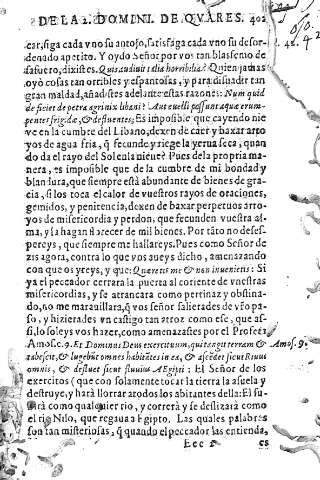 DE LA 2. DOMINI. DE QVARES. 402
car, siga cada vno su antojo, satisfaga cada vno su desor-
denado apetito. Y oydo Señor por vos tan blasfemo de
safuero, dixistes. Quis audiuit talia horribilia? Quien jamas
oyò cosas tan orribles y espantosas, y para disuadir tan
gran maldad, añadistes adelante estas razones: Num quid
deficiet de petra agri nix libani? Aut euelli possunt aquæ erum-
pentes frigidæ, & defluentes; Es imposible que cayendo nie
ve en la cumbre del Libano, dexen de caer y baxar arro
yos de agua fria, q̃ fecunde y riegue la yerua seca, quan
do da el rayo del Sol en la nieue? Pues de la propria ma-
nera, es imposible que de la cumbre de mi bondad y
blandura, que siempre està abundante de bienes de gra-
cia, si los toca el calor de vuestros rayos de oraciones,
gemidos, y penitencia, dexen de baxar perpetuos arro-
yos de misericordia y perdon, que fecunden vuestra al-
ma, y la hagan florecer de mil bienes. Por tãto no deses-
pereys, que siempre me hallareys. Pues como Señor de
zis agora, contra lo que vos aueys dicho, amenazando
con que os yreys, y que: Quæretis me & non inuenietis: Si
ya el peccador cerrara la puerta al coriente de vuestras
misericordias, y se atrancara como pertinaz y obstina-
do, no me marauillara, q̃ vos señor salierades de vr̃o pas-
so, y hizierades vn castigo tan atroz como ese, que as-
si, lo soleys vos hazer, como amenazastes por el Profeta
Amos.c.9. Et Dominus Deus exercituum, qui tangit terram & Amos. 9.
tabescit, & lugebũt omnes habitãtes in ea, & ascẽdet sicut Riuus
omnis, & defluet sicut fluuius AEgipti: El Señor de los
exercitos (que con solamente tocar la tierra la asuela y
destruye, y harà llorar a todos los abitantes della: El su-
birà como qualquier rio, y correrà y se deslizarà como
el rio Nilo, que regaua a Egipto. Las quales palabras
son tan misteriosas, q̃ quando el peccador las entienda,
Eee 2 es